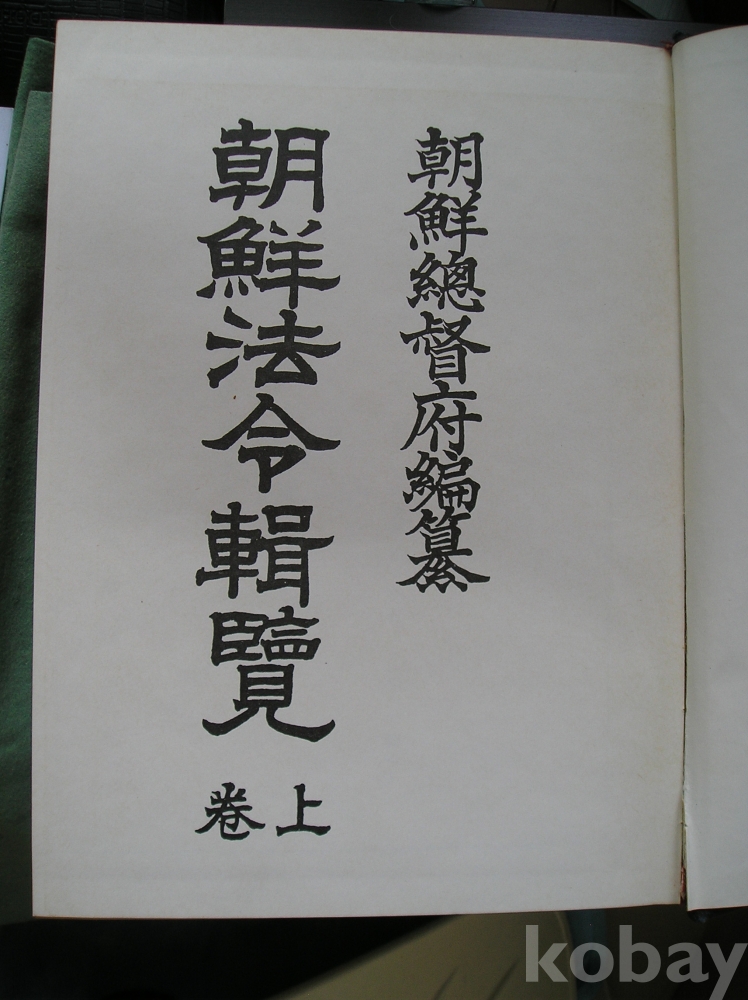 朝鮮總督府編纂
朝鮮法令輯覽
上卷
kobay